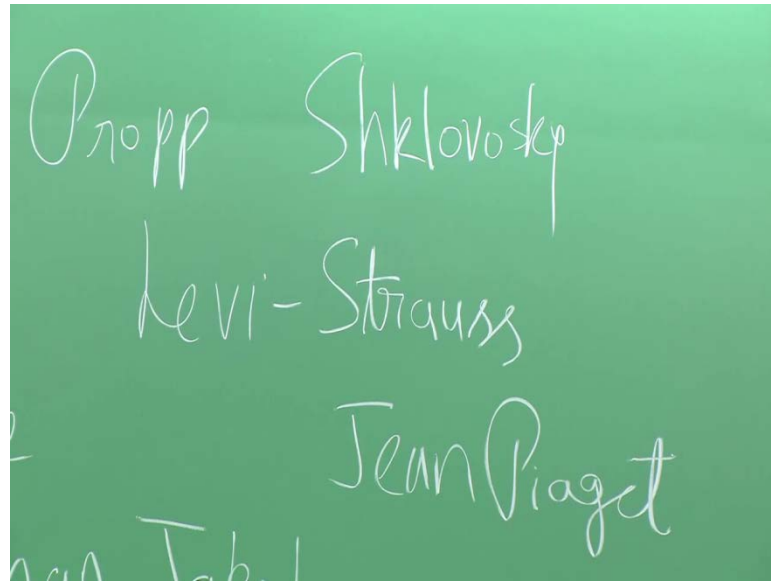 Propp Shklovosky
Levi-Strauss
Jean Piaget